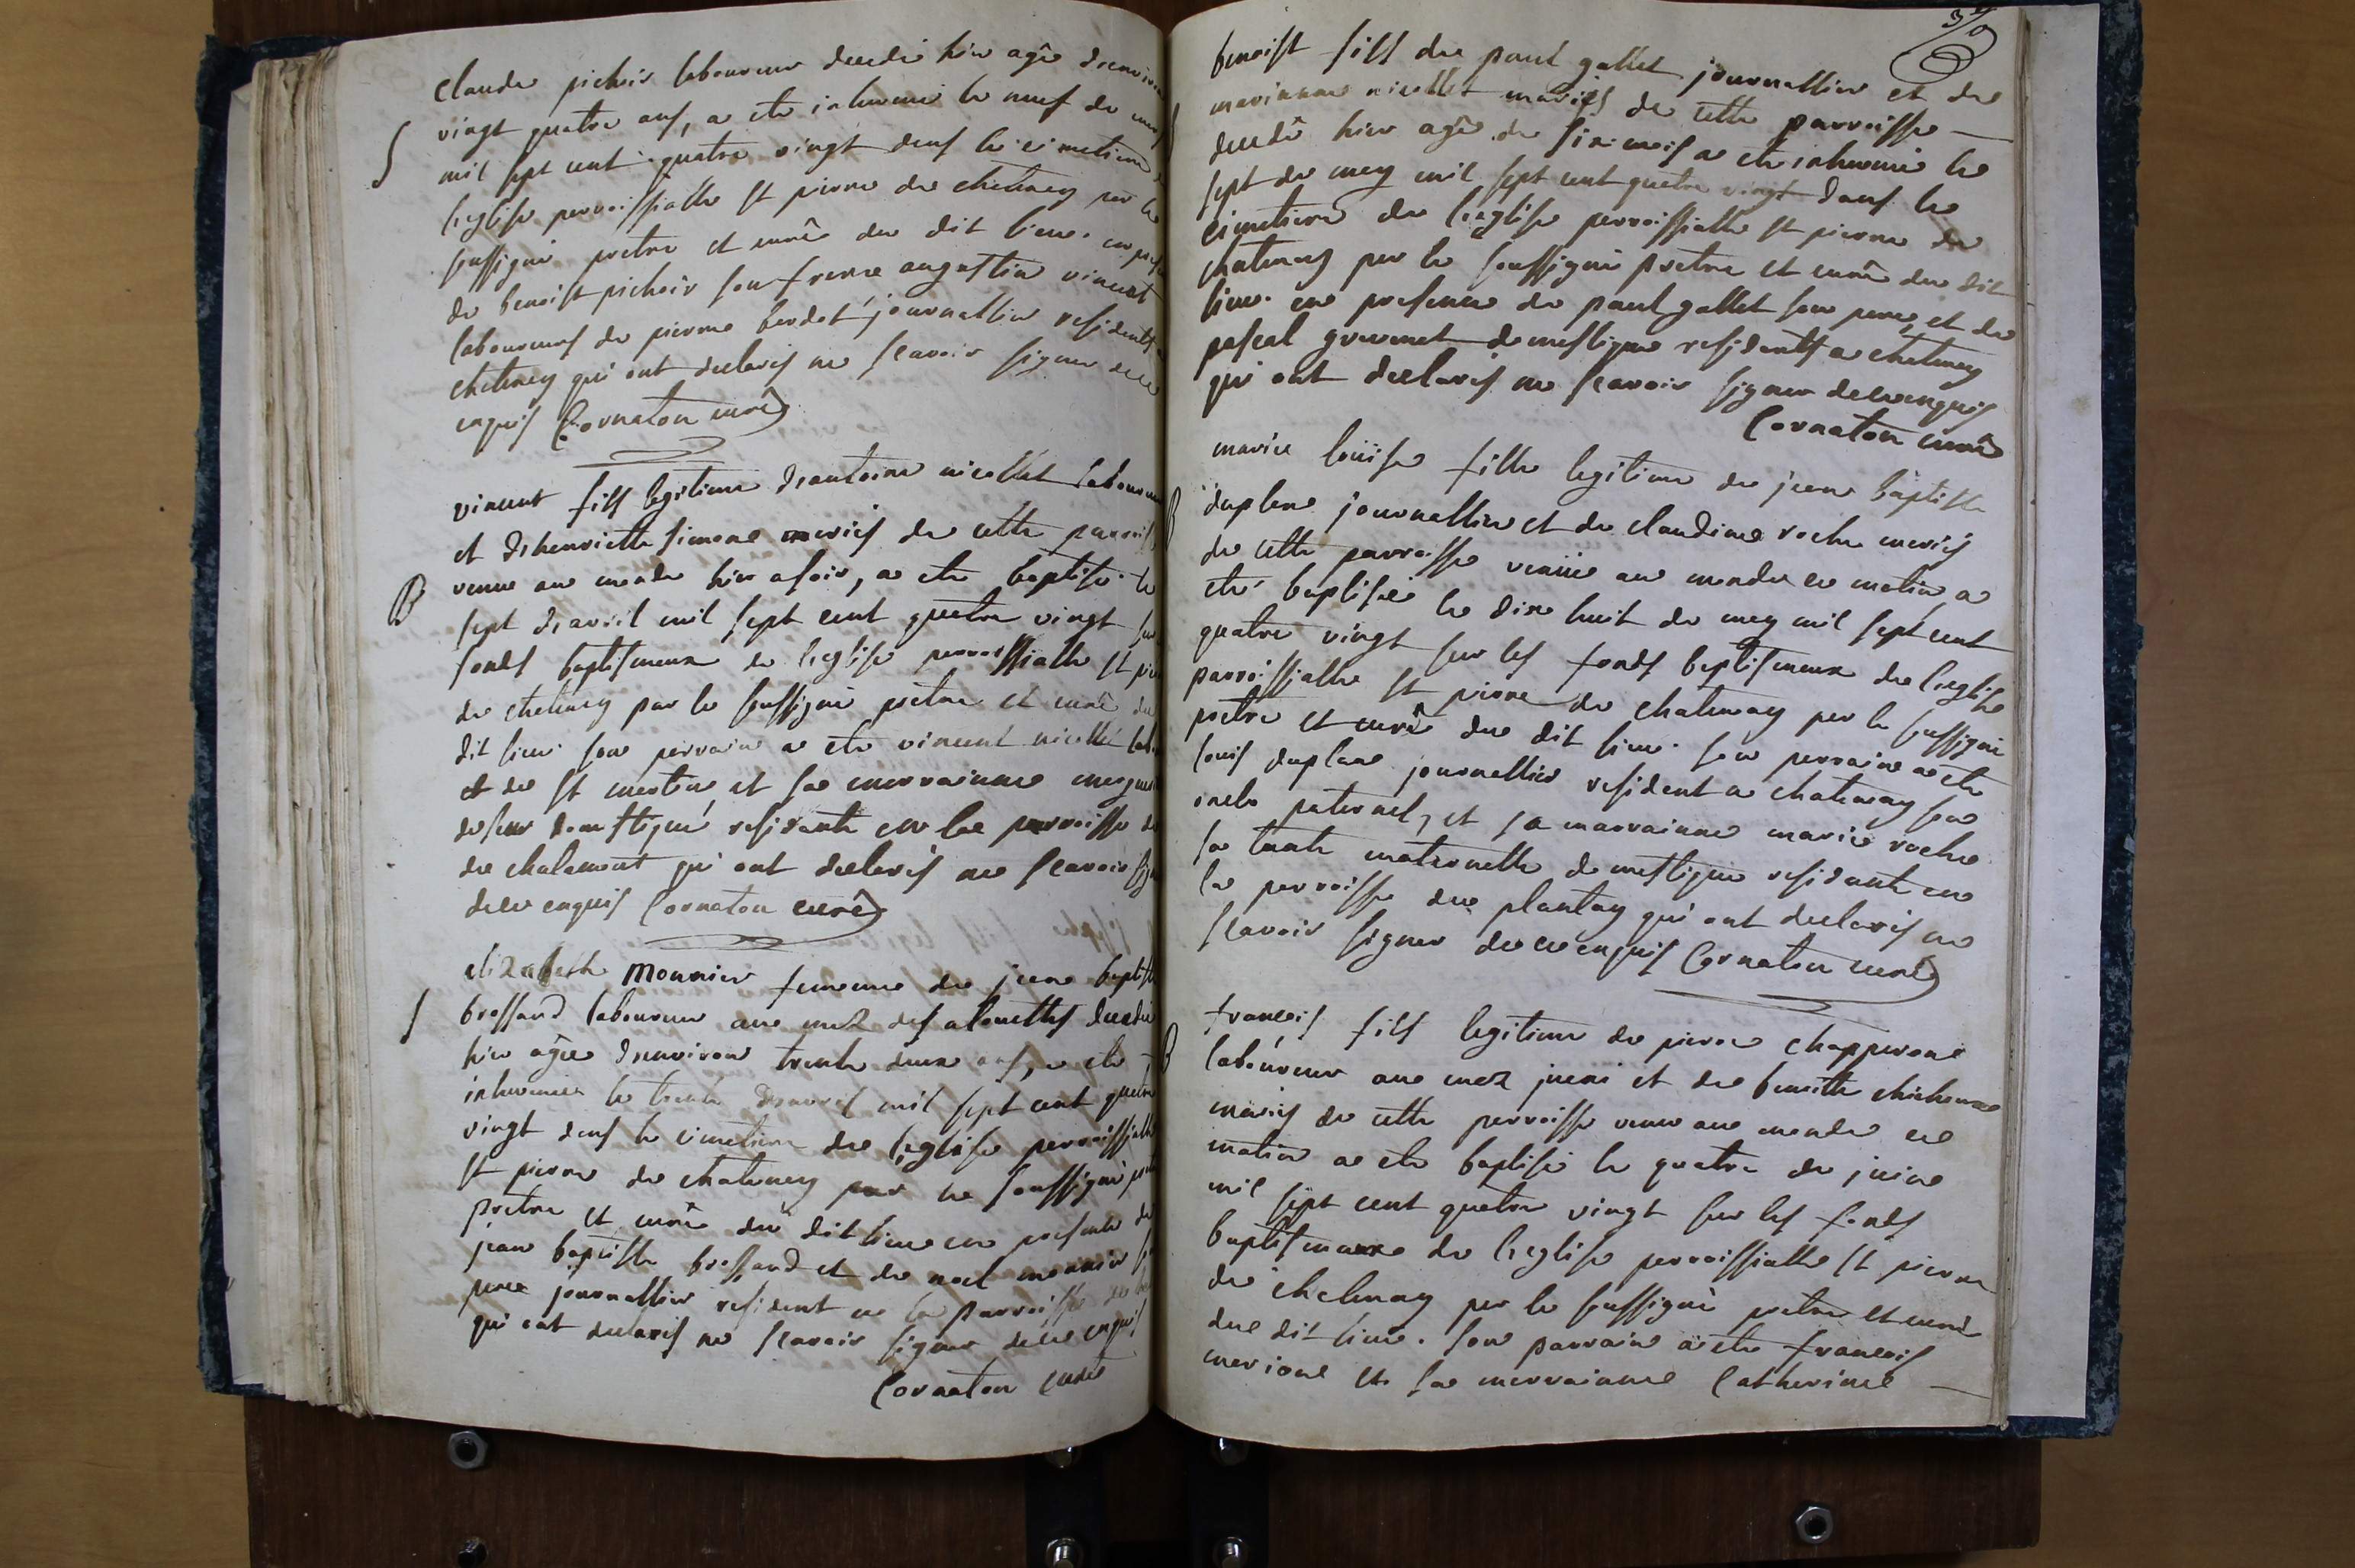 claude pichoir laboureur decedé hier agé d'environ
vingt quatre ans, a ete inhumé le neuf de
mil sept cent quatre vingt dans le cimetiere
leglise parroissialle st pierre de chatenay par le
soussigné pretre et curé du dit lieu. en
de benoist pichoir son frerre augustin vincent
laboureurs de pierre berdet journallier residents
chatenay qui ont declarés ne scavoir signer de ce
enquis Cornaton curé
S
vincent fils legitime d'antoine nicollet
et d'henriette simone mariés de cette
venu au monde hier a soir, a ete baptisé le
sept d'avril mil sept cent quatre vingt sur
fonds baptismeux de leglise parroissialle st
de chatenay par le soussigné pretre et curé du
dit lieu. son parrain a ete vincent nicollet
et de st martin et sa marrainne
domestique residante en la parroisse
de chalamont qui ont declarés ne scavoir
de ce enquis Cornaton curé
B
elizabeth Monnier femme de jean
bressand laboureur au mas des alouettes decedée
hier agée d'environ trente deux ans, a ete
inhumée le trente d'avril mil sept cent quatre
vingt dans le cimetiere de leglise parroissialle
st pierre de chatenay par le soussigné
pretre et curé du dit lieu en presence de
jean baptiste bressand et de noel monnier
pere journallier resident en la parroisse de
qui ont declarés ne scavoir signer de ce enquis
Cornaton curé
S
benoist fils de paul gallet journallier et de
marianne nicollet mariés de cette parroisse
decedé hier agé de six mois a ete inhumé le
sept de may mil sept cent quatre vingt dans le
cimetiere de leglise parroissialle st pierre de
chatenay par le soussigné pretre et curé du dit
lieu. en presence de paul gallet son pere, et de
pascal gourmet domestique residents a chatenay
qui ont declarés ne scavoir signer de ce enquis
Cornaton curé
marie loüise fille legitime de jean baptiste
duplane journallier et de claudine roche mariés
de cette parroisse venüe au monde ce matin, a
eté baptisée le dix huit de may mil sept cent
quatre vingt sur les fonds baptismeux de leglise
parroissialle st pierre de chatenay par le soussigné
pretre et curé du dit lieu. son parrain a ete
louis duplane journallier resident a chatenay son
oncle paternel, et sa marrainne marie roche
sa tante maternelle domestique residante en
la parroisse du plantay qui ont declarés ne
scavoir signer de ce enquis Cornaton curé
B
francois fils legitime de pierre chapperone
laboureur au mas et de benoitte
mariés de cette parroisse venu au monde ce
matin a ete baptisé le quatre de juine
mil sept cent quatre vingt sur les fonds
baptismeaux de leglise parroissialle st pierre
de chatenay par le soussigné pretre et curé
du dit lieu. son parrain a ete francois
marione et sa marrainne Catherinne
B